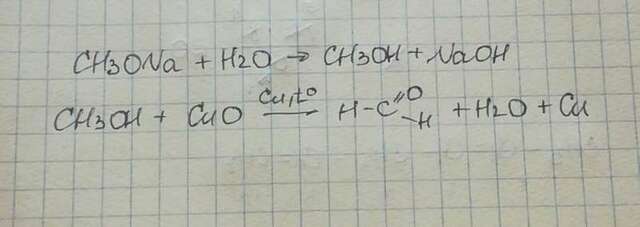 CH3ONa + H2O → CH3OH + NaOH
CH3OH + CuO $\xrightarrow{Cu, t°}$ H-C(=O)-H + H2O + Cu